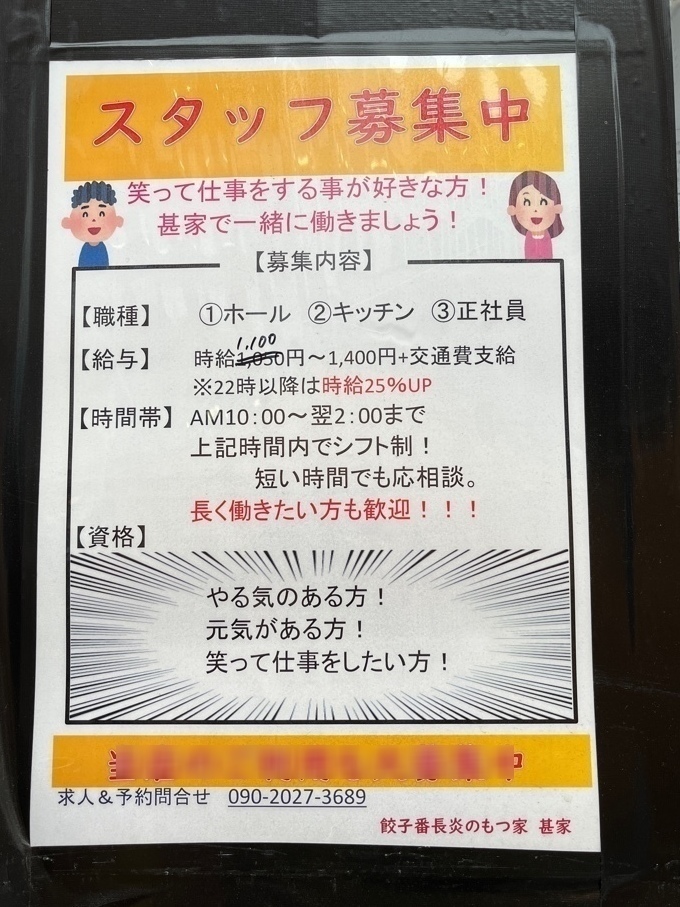 スタッフ募集中
笑って仕事をする事が好きな方！
甚家で一緒に働きましょう！
【募集内容】
【職種】 ①ホール ②キッチン ③正社員
1,100
【給与】 時給1,050円～1,400円+交通費支給
※22時以降は時給25%UP
【時間帯】 AM10：00～翌2：00まで
上記時間内でシフト制！
短い時間でも応相談。
長く働きたい方も歓迎！！！
【資格】
やる気のある方！
元気がある方！
笑って仕事をしたい方！
中
求人＆予約問合せ 090-2027-3689
餃子番長炎のもつ家 甚家